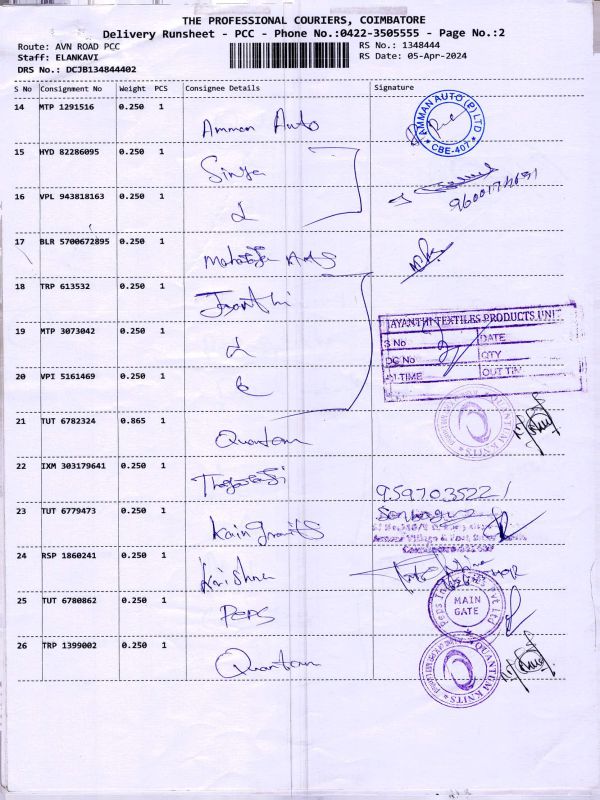 THE PROFESSIONAL COURIERS, COIMBATORE
Delivery Runsheet - PCC - Phone No.:0422-3505555 - Page No.:2
Route: AVN ROAD PCC
RS No.: 1348444
Staff: ELANKAVI
RS Date: 05-Apr-2024
DRS No.: DCJB134844402
S No Consignment No Weight PCS Consignee Details Signature
14 MTP 1291516 0.250 1 Amman Auto
AMMAN AUTO (P) LTD
CBE-407
15 HYD 82286095 0.250 1
16 VPL 943818163 0.250 1
17 BLR 5700672895 0.250 1
18 TRP 613532 0.250 1 Jayanthi
19 MTP 3073042 0.250 1
JAYANTHI TEXTILES PRODUCTS UNIT
S No DATE
DC No QTY
IN TIME OUT TIME
20 VPI 5161469 0.250 1
21 TUT 6782324 0.865 1 Quantum
QUANTUM KNITS
22 IXM 303179641 0.250 1
9597035221
23 TUT 6779473 0.250 1
24 RSP 1860241 0.250 1 Krishna
25 TUT 6780862 0.250 1 Peps
MAIN
GATE
26 TRP 1399002 0.250 1 Quantum
QUANTUM KNITS